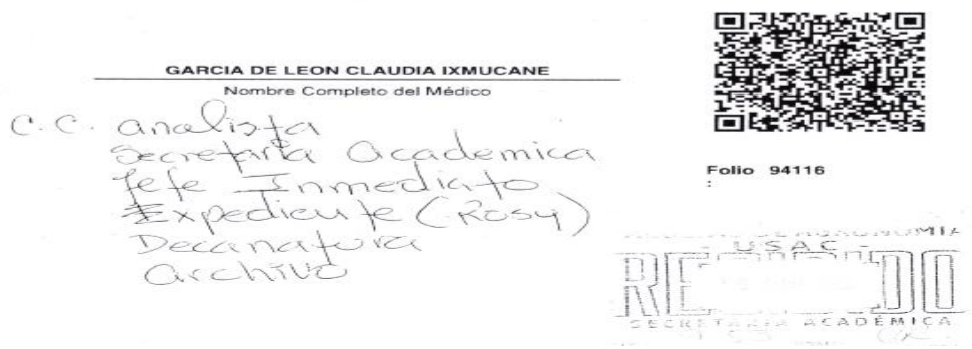 GARCIA DE LEON CLAUDIA IXMUCANE
Nombre Completo del Médico
C.C. analista
Secretaria Academica
Jefe Inmediato
Expediente (Rosy)
Decanatura
archivo
Folio 94116
:
AGRONOMIA
- USAC -
RECIBIDO
SECRETARIA ACADÉMICA